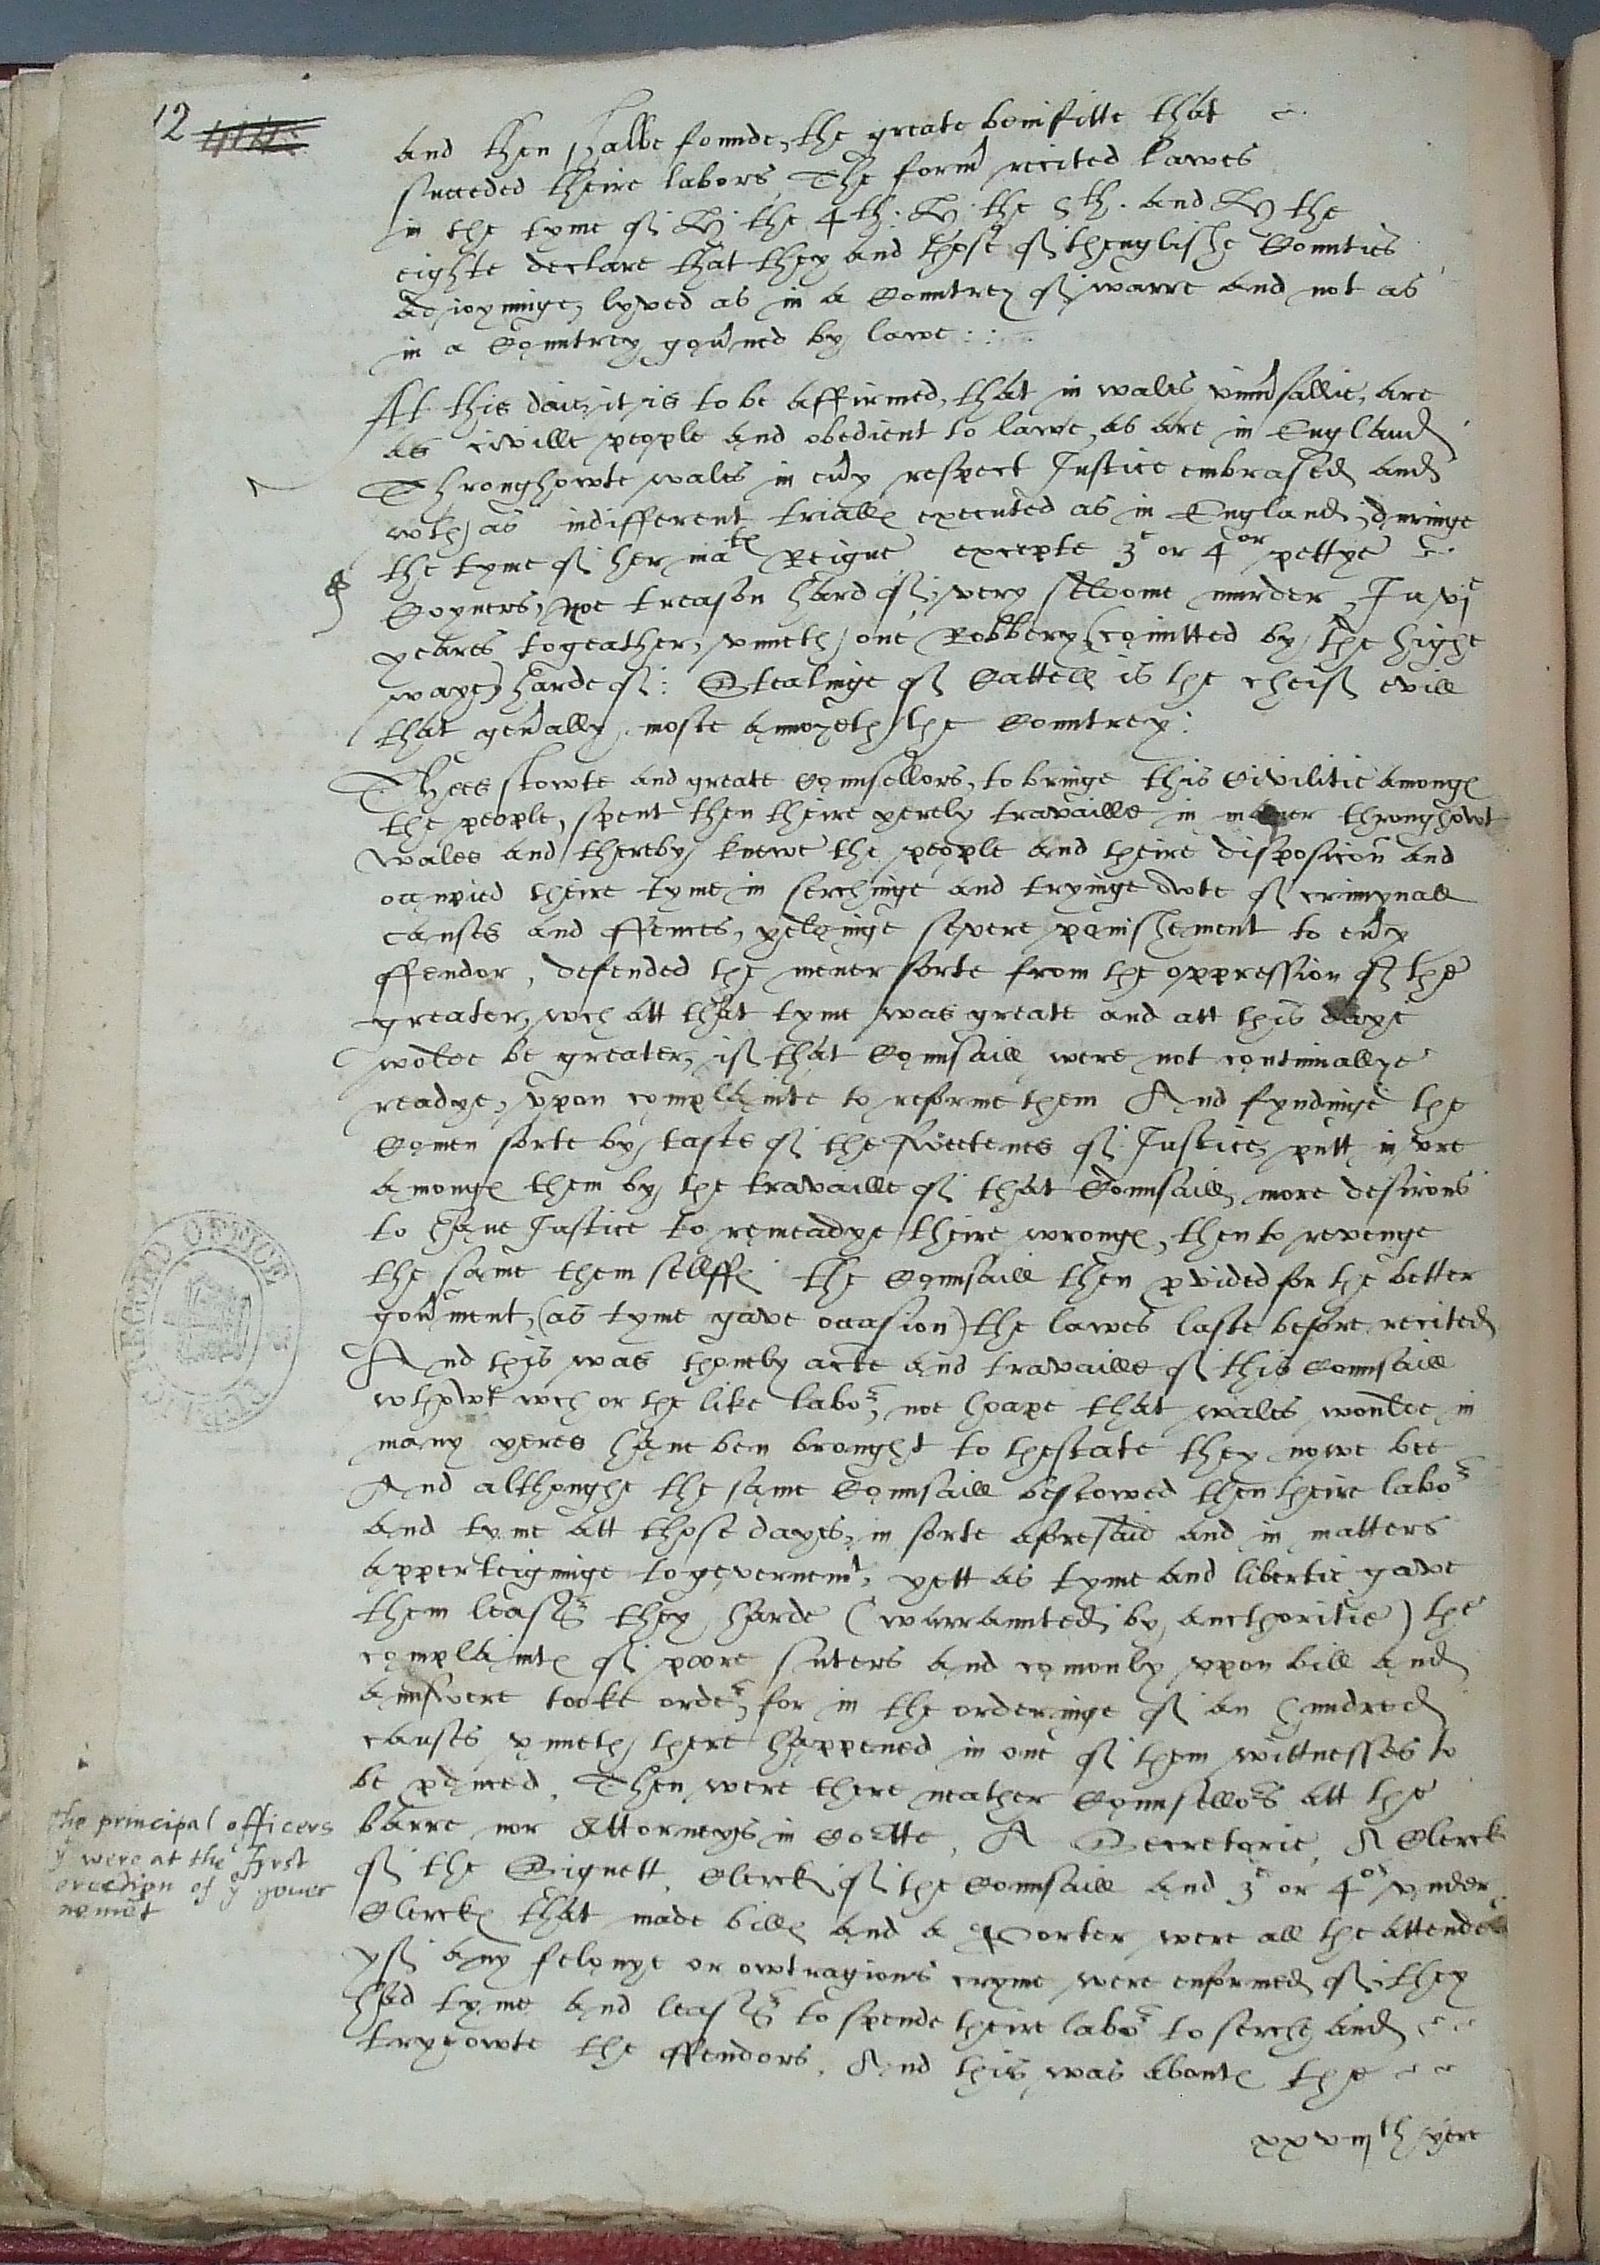 12
and then shalbe founde, the greate benifitte that
succeded theire labors, The form recited lawes
in the tyme of K: the 4th. K: the 5th. and K: the
eighte declare that they and those of thenglishe Counties
adioyninge, lyved as in a Countrey of warre and not as
in a Countrey goûned by lawe:
At this daie, it is to be affirmed, that in wales vniûsallie, are
as civille people and obedient to lawe, as are in England
Throughowte wales in eûy respect Justice embrased and
wth as indifferent trialle executed as in England, duringe
the tyme of her mates Reigne excepte 3e or 4or pettye
Coyners, noe treason hard of, very seldome murder, In vj
yeares togeather, vnneth one Robbery (comitted by the highe
waye) harde of: Stealinge of Cattell is the cheif evill
that geûally moste annoyeth the Countrey:
Thees stowte and greate Counsellors, to bringe this Civilitie amonge
the people, spent then theire yerely travaille in maner throughowt
wales and thereby knewe the people and theire disposicon and
occupied theire tyme in serchinge and tryinge owte of crimynall
causes and offences, yeldinge severe punishement to eûy
offendor, defended the mener sorte from the oppression of the
greater, wch att that tyme was greate and att this daye
wolde be greater, if that Counsaill were not continuallye
readye, vpon complainte to reforme them And fyndinge the
Comen sorte by taste of the sweetenes of Justice, putt in vre
amonge them by the travaille of that Counsaill, more desirous
to have Justice to remeadye theire wronges, then to revenge
the same them sellffes the Counsaill then pvided for the better
goûment, (as tyme gave occasion) the lawes laste before recited
And this was thonely acte and travaille of this Counsaill
wthowt wch or the like labor, noe hoape that wales woulde in
many yeres have ben brought to thestate they nowe bee
And althoughe the same Counsaill bestowed then theire labor
and tyme att those dayes, in sorte aforesaid and in matters
apperteigninge to governemt, yett as tyme and libertie gave
them leasr they harde (warraunted by aucthoritie) the
complaintes of poore suters and comonly vpon bill and
aunswere tooke order, for in the orderinge of an hundred
causes vnneth there happened in one of them wittnesses to
be pduced. Then were there neather Counsellors att the
barre nor Attorneys in Cortte, A Secretorie, A Clerck
of the Signett, Clerck of the Counsaill and 3e or 4or vnder
Clerckes that made billes and a Porter were all the attende
yf any felonye or owtragious cryme were enformed of, they
had tyme and leasr to spende theire labor to serche and
tryeowte the offendors. And this was aboute the
xxviijth yere
the principal officers
yt were at the first
erection of ye gouer
nemet
RECORD OFFICE